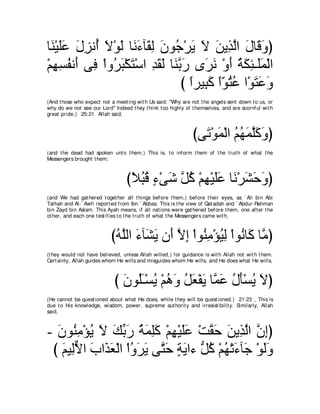 (وَقَالَ الَّذِينَ لاَ يَرْجُونَ لِقَآءَنَا لَوْلاَ أُنزِلَ عَلَيْنَا
الْمَلَـئِكَةُ أَوْ نَرَى رَبَّنَا لَقَدِ اسْتَكْبَرُواْ فِى أَنفُسِهِمْ
وَعَتَوْا عُتُوّاً كَبِيراً )
(And those who expect not a meeting with Us said: "Why are not the angels sent down to us, or
why do we not see our Lord'' Indeed they think too highly of themselves, and are scornful with
great pride.) 25:21 Allah said,
(وَكَلَّمَهُمُ الْمَوْتَى)
(and the dead had spoken unto them,) This is, to inform them of the truth of what the
Messengers brought them;
(وَحَشَرْنَا عَلَيْهِمْ كُلَّ شَىْءٍ قُبُلاً)
(and We had gathered together all things before them,) before their eyes, as `Ali bin Abi
Talhah and Al-`Awfi reported from Ibn `Abbas. This is the view of Qatadah and `Abdur-Rahman
bin Zayd bin Aslam. This Ayah means, if all nations were gathered before them, one after the
other, and each one testifies to the truth of what the Messengers came with,
(مَّا كَانُواْ لِيُؤْمِنُواْ إِلاَّ أَن يَشَآءَ اللَّهُ)
(they would not have believed, unless Allah willed,) for guidance is with Allah not with them.
Certainly, Allah guides whom He wills and misguides whom He wills, and He does what He wills.
(لاَ يُسْأَلُ عَمَّا يَفْعَلُ وَهُمْ يُسْـَلُونَ )
(He cannot be questioned about what He does, while they will be questioned.) 21:23 , This is
due to His knowledge, wisdom, power, supreme authority and irresistibility. Similarly, Allah
said,
إِنَّ الَّذِينَ حَقَّتْ عَلَيْهِمْ كَلِمَةُ رَبِّكَ لاَ يُؤْمِنُونَ -
وَلَوْ جَآءَتْهُمْ كُلُّ ءايَةٍ حَتَّى يَرَوُاْ الْعَذَابَ الاٌّلِيمَ )